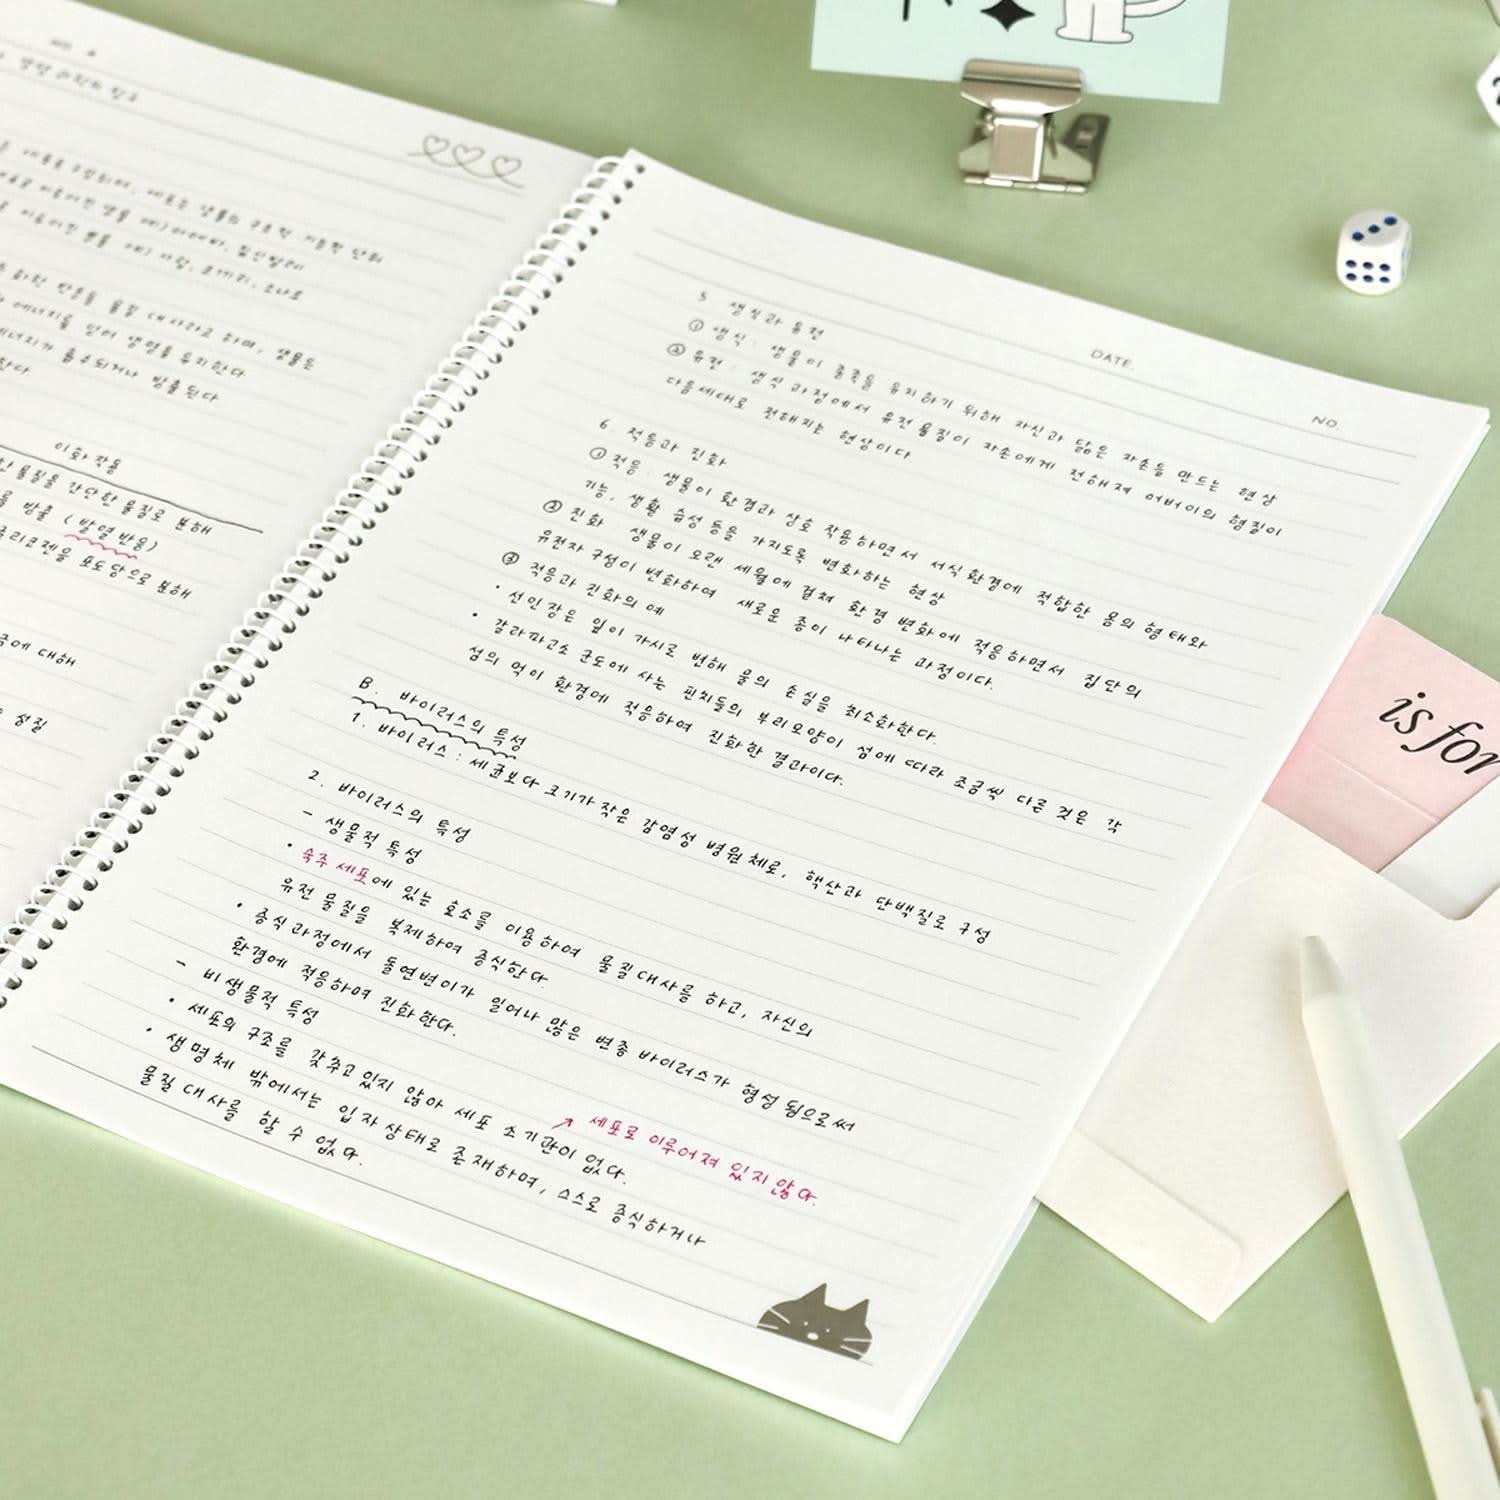 이루어진 생물 예) 아메바, 짚신벌레
이루어진 생물 예) 사람, 코끼리, 소나무
반응을 물질대사라고 하며, 생물은
에너지를 얻어 생명을 유지한다
에너지가 흡수되거나 방출된다
한다
이화작용
물질을 간단한 물질로 분해
방출 (발열반응)
글리코젠을 포도당으로 분해
대해
성질
DATE.
NO.
5 생식과 유전
① 생식 : 생물이 종족을 유지하기 위해 자신과 닮은 자손을 만드는 현상
② 유전 : 생식 과정에서 유전물질이 자손에게 전해져 어버이의 형질이
다음세대로 전해지는 현상이다
6 적응과 진화
① 적응 : 생물이 환경과 상호 작용하면서 서식환경에 적합한 몸의 형태와
기능, 생활 습성 등을 가지도록 변화하는 현상
② 진화 생물이 오랜 세월에 걸쳐 환경 변화에 적응하면서 집단의
유전자 구성이 변화하여 새로운 종이 나타나는 과정이다.
③ 적응과 진화의 예
· 선인장은 잎이 가시로 변해 물의 손실을 최소화한다.
· 갈라파고소 군도에 사는 핀치들의 부리모양이 섬에 따라 조금씩 다른 것은 각
섬의 먹이 환경에 적응하여 진화한 결과이다.
B. 바이러스의 특성
1. 바이러스 : 세균보다 크기가 작은 감염성 병원체로, 핵산과 단백질로 구성
2. 바이러스의 특성
- 생물적 특성
· 숙주 세포에 있는 효소를 이용하여 물질대사를 하고, 자신의
유전 물질을 복제하여 증식한다
· 증식과정에서 돌연변이가 일어나 많은 변종 바이러스가 형성됨으로써
환경에 적응하여 진화한다.
- 비생물적 특성
· 세포의 구조를 갖추고 있지 않아 세포 소기관이 없다.
↗ 세포로 이루어져 있지 않다.
· 생명체 밖에서는 입자상태로 존재하며, 스스로 증식하거나
물질대사를 할 수 없다.
is for